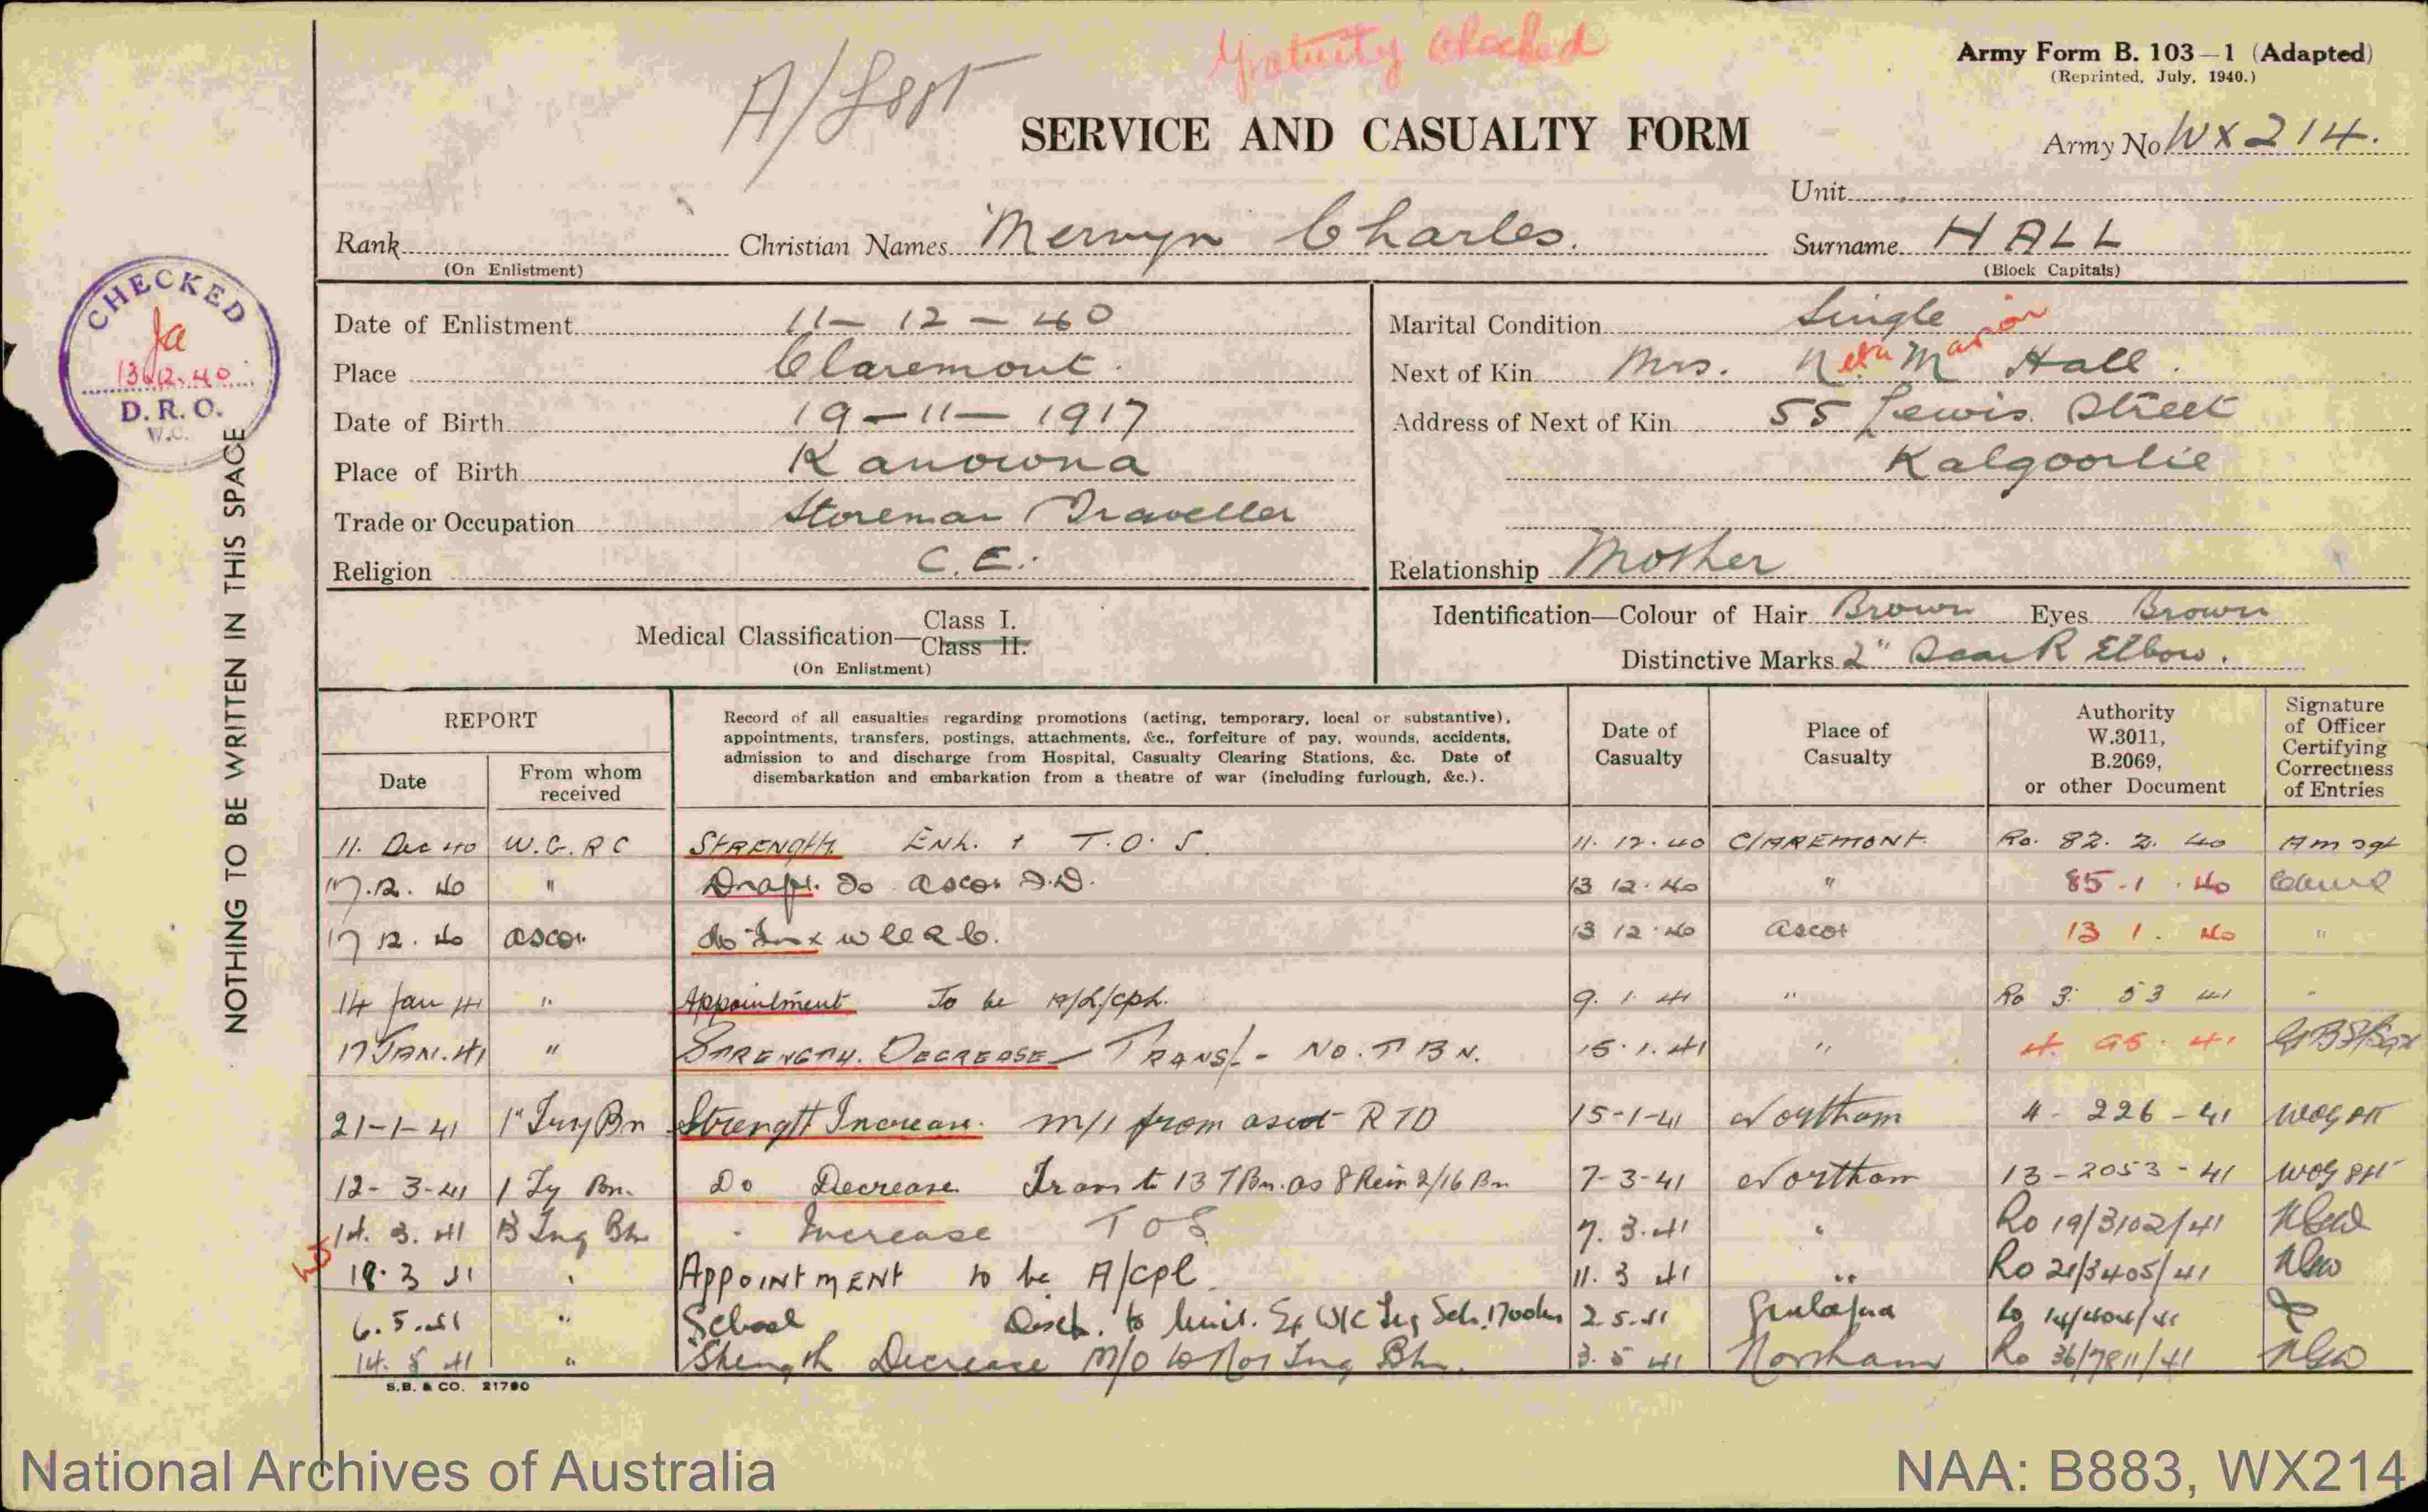 Gratuity Checked
Army Form B. 103—1 (Adapted)
(Reprinted, July, 1940.)
A/Sgt
SERVICE AND CASUALTY FORM
Army No. WX214.
Unit
Rank
(On Enlistment)
Christian Names Mervyn Charles.
Surname HALL
(Block Capitals)
CHECKED
13.12.40
D.R.O.
W.C.
NOTHING TO BE WRITTEN IN THIS SPACE
Date of Enlistment 11-12-40
Place Claremont.
Date of Birth 19-11-1917
Place of Birth Kanowna
Trade or Occupation Storeman Traveller
Religion C.E.
Marital Condition Single
Next of Kin Mrs. Neta Marion Hall.
Address of Next of Kin 55 Lewis Street
Kalgoorlie
Relationship Mother
Medical Classification—Class I.
Class II.
(On Enlistment)
Identification—Colour of Hair Brown Eyes Brown
Distinctive Marks 2" Scar R Elbow.
REPORT
Date
From whom received
Record of all casualties regarding promotions (acting, temporary, local or substantive),
appointments, transfers, postings, attachments, &c., forfeiture of pay, wounds, accidents,
admission to and discharge from Hospital, Casualty Clearing Stations, &c. Date of
disembarkation and embarkation from a theatre of war (including furlough, &c.).
Date of Casualty
Place of Casualty
Authority W.3011, B.2069, or other Document
Signature of Officer Certifying Correctness of Entries
11. Dec 40 W.C.RC STRENGTH. Enl. + T.O.S. 11.12.40 CLAREMONT. Ro. 82. 2. 40
17.12.40 " Draft. to Ascot 13 12.40 " 85.1.40
17 12.40 Ascot 13 12.40 Ascot 13 1. 40 "
14 Jan 41 " Appointment To be A/L/Cpl. 9.1.41 " Ro 3. 53 41
17 JAN.41 " STRENGTH. DECREASE - TRANS/- NO. T BN. 15.1.41 " 4. 95. 41
21-1-41 1st Trg Bn Strength Increase. m/i from Ascot RTD 15-1-41 Northam 4-226-41
12-3-41 1 Tg Bn. Do Decrease Trans to 13 TBn. as 8 Rein 2/16 Bn 7-3-41 Northam 13-2053-41
14.3.41 13 Tng Bn " Increase TOS 7.3.41 " Ro 19/3102/41
18.3 41 " APPOINTMENT to be A/Cpl. 11.3 41 " Ro 21/3405/41
6.5.41 " School Disch. to Unit. Ex W/C Trg Sch. 2.5.41
14.5 41 " Strength Decrease M/O to Tng Bn. 3.5 41 Northam Ro 36/7811/41
S.B. & CO. 21780
National Archives of Australia
NAA: B883, WX214